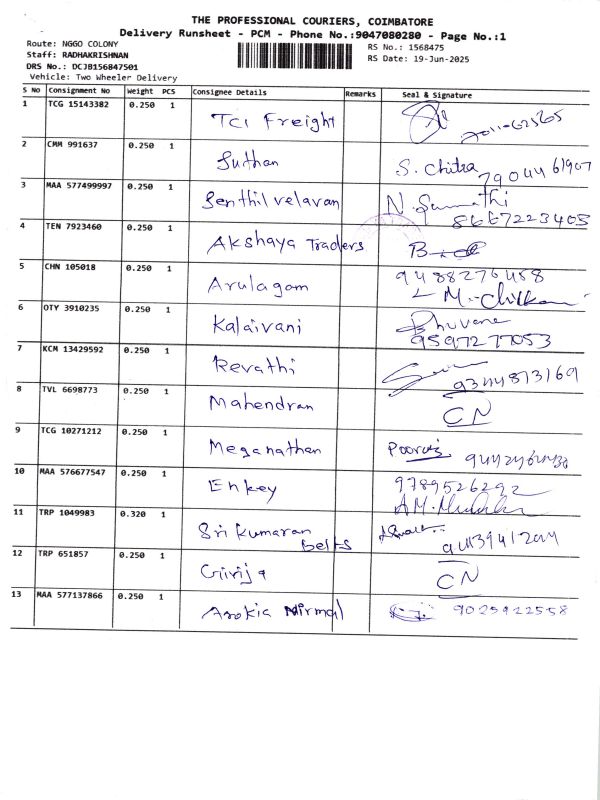 THE PROFESSIONAL COURIERS, COIMBATORE
Delivery Runsheet - PCM - Phone No.:9047080280 - Page No.:1
Route: NGGO COLONY
RS No.: 1568475
Staff: RADHAKRISHNAN
RS Date: 19-Jun-2025
DRS No.: DCJB156847501
Vehicle: Two Wheeler Delivery
S No Consignment No Weight PCS Consignee Details Remarks Seal & Signature
1 TCG 15143382 0.250 1 TCI Freight
2 CMM 991637 0.250 1 Suthan S. Chitra 7904461907
3 MAA 577499997 0.250 1 Senthil velavan N. Sumathi
8667223405
4 TEN 7923460 0.250 1 Akshaya Traders
5 CHN 105018 0.250 1 Arulagam 9488276458
6 OTY 3910235 0.250 1 Kalaivani Bhuvana
9597277053
7 KCM 13429592 0.250 1 Revathi 9344873169
8 TVL 6698773 0.250 1 Mahendran CN
9 TCG 10271212 0.250 1 Meganathan
10 MAA 576677547 0.250 1 Enkey 9789526292
11 TRP 1049983 0.320 1 Sri Kumaran
Belts
12 TRP 651857 0.250 1 Girija CN
13 MAA 577137866 0.250 1 Arokia Nirmal 9025922558